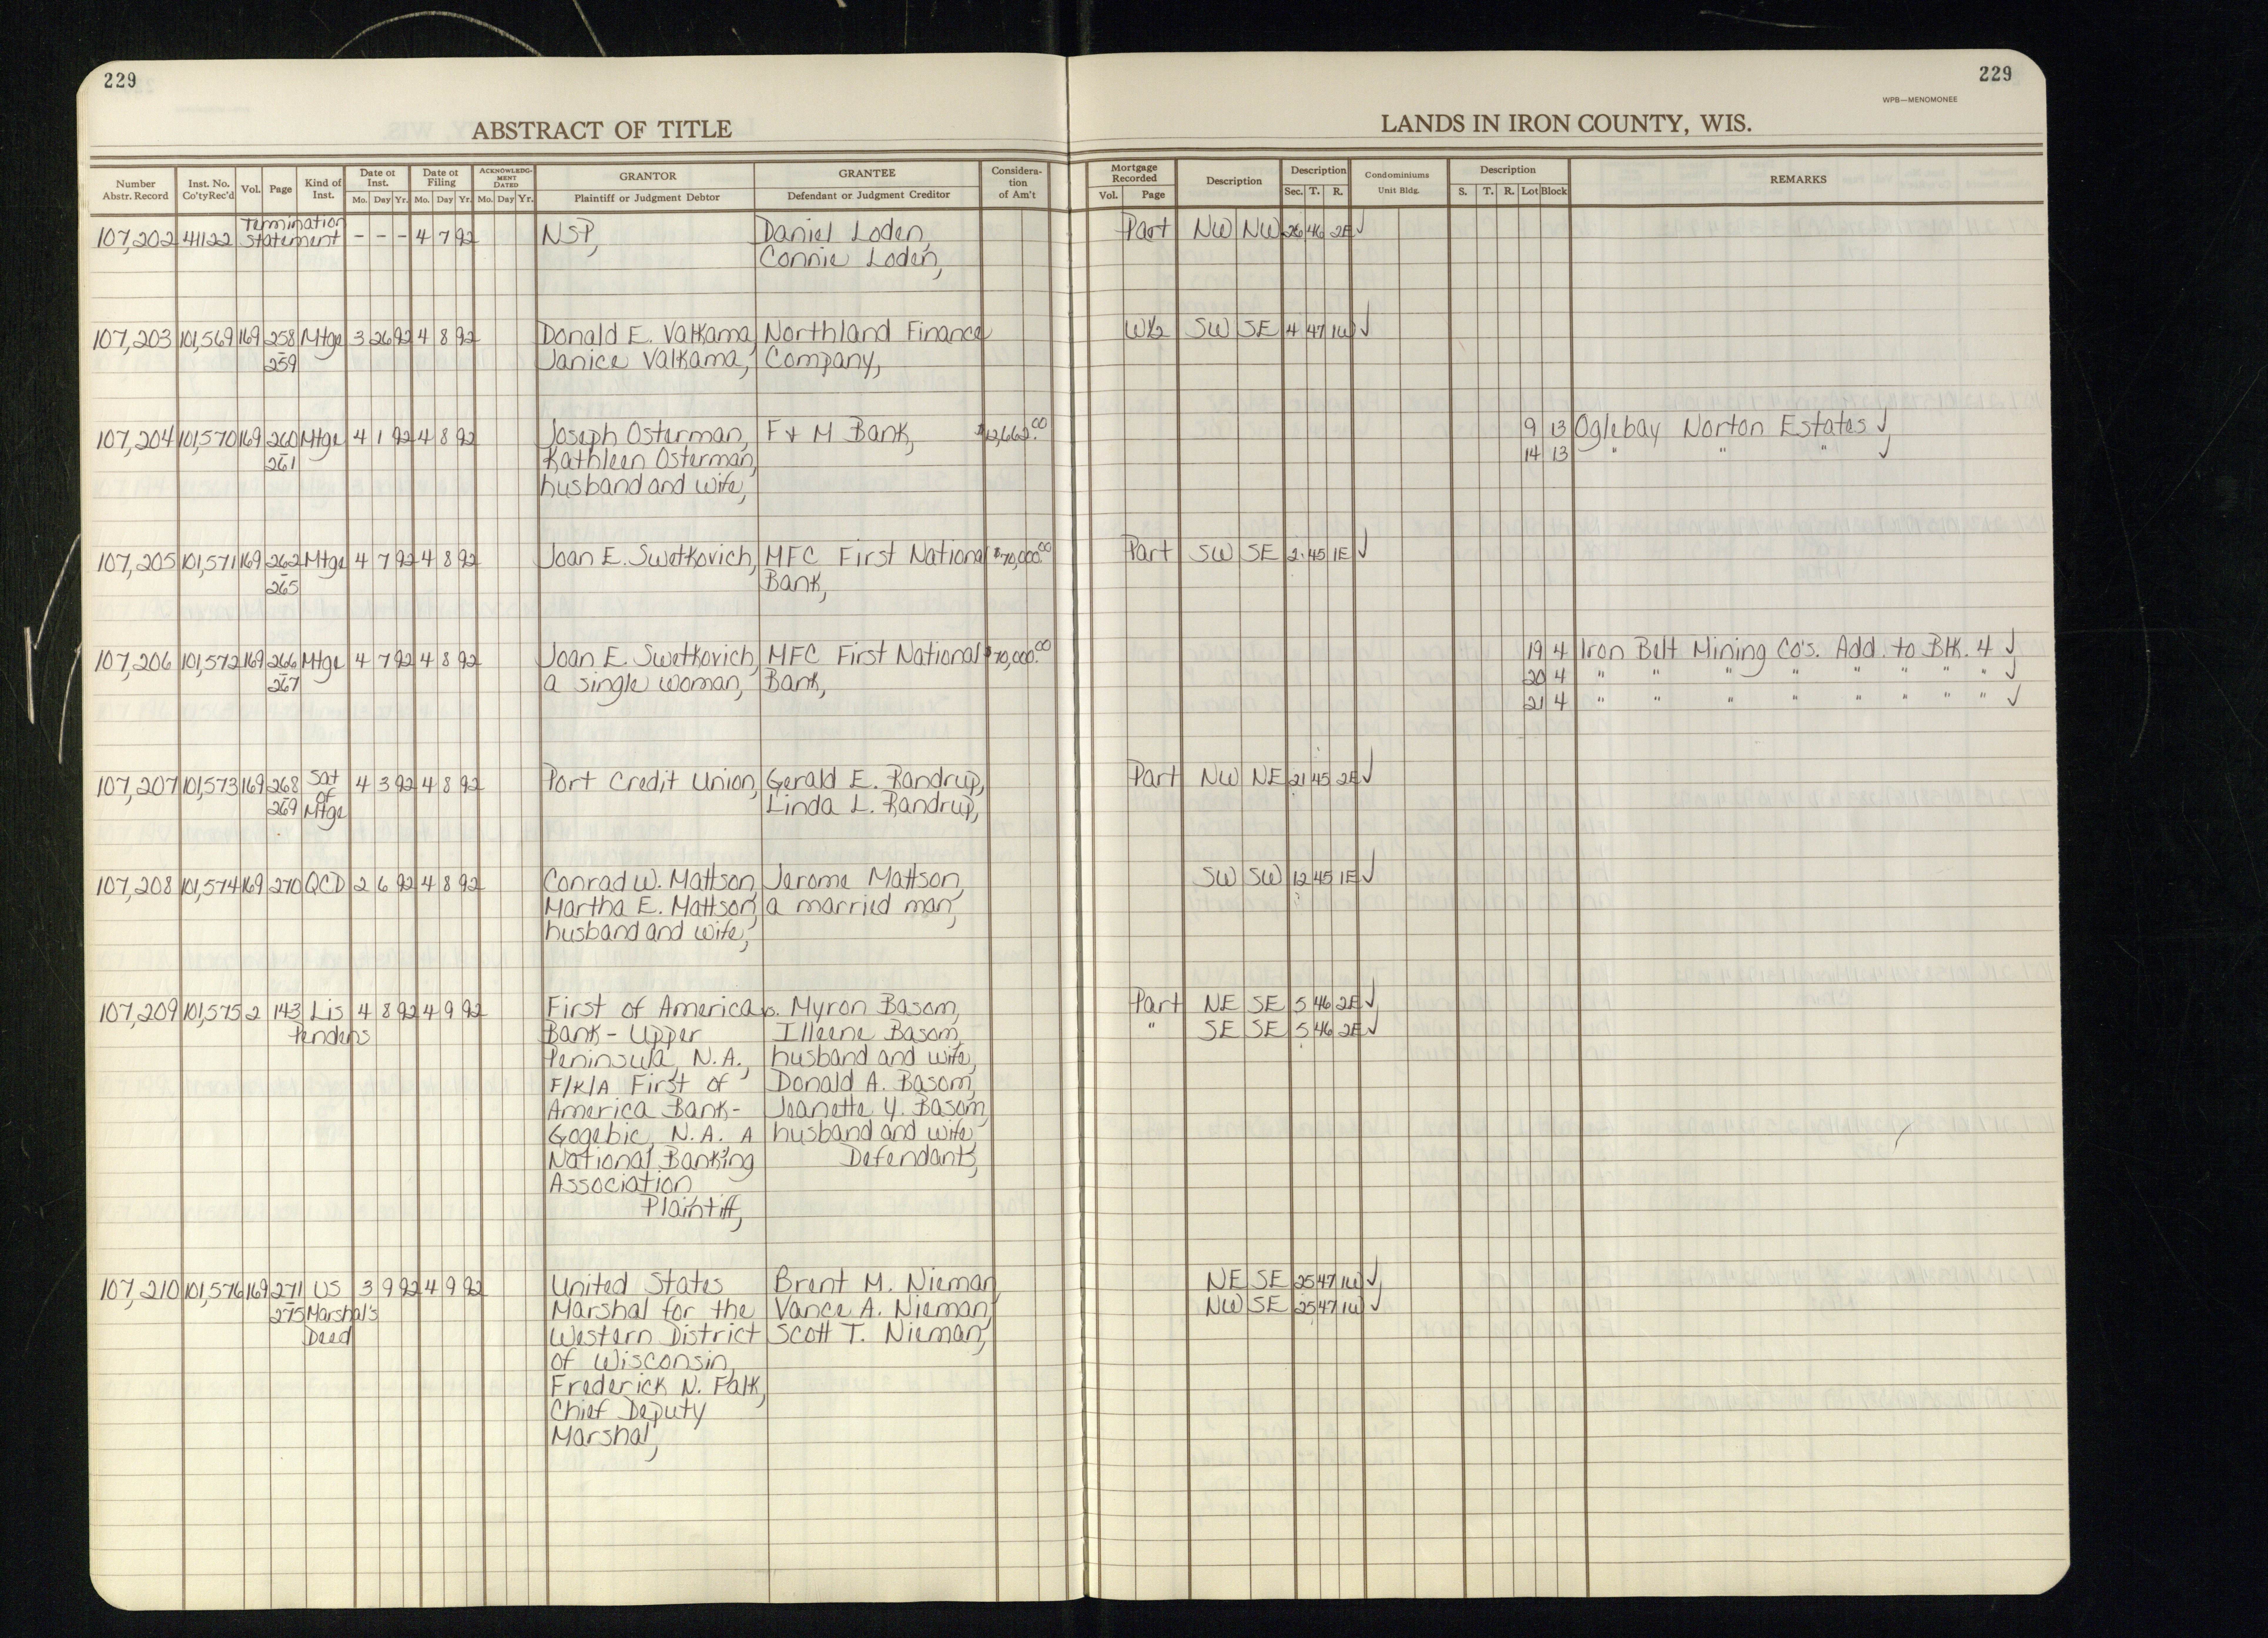 229
229
WPB—MENOMONEE
ABSTRACT OF TITLE
LANDS IN IRON COUNTY, WIS.
Number Abstr. Record | Inst. No. Co'ty Rec'd | Vol. | Page | Kind of Inst. | Date of Inst. Mo. Day Yr. | Date of Filing Mo. Day Yr. | ACKNOWLEDG-MENT DATED Mo. Day Yr. | GRANTOR Plaintiff or Judgment Debtor | GRANTEE Defendant or Judgment Creditor | Considera-tion of Am't | Mortgage Recorded Vol. Page | Description | Description Sec. T. R. | Condominiums Unit Bldg. | Description S. T. R. Lot Block | REMARKS
Termination
107,202 41122 Statement - - - 4 7 92 NSP, Daniel Loden, Part NW NW 26 46 2E ✓
Connie Loden,
107,203 101,569 169 258 Mtge 3 26 92 4 8 92 Donald E. Valkama Northland Finance W½ SW SE 4 47 1W ✓
- 259 Janice Valkama, Company,
107,204 101,570 169 260 Mtge 4 1 92 4 8 92 Joseph Osterman, F & M Bank, $12,662.00 9 13 Oglebay Norton Estates ✓
- 261 Kathleen Osterman, 14 13 " " " ✓
husband and wife,
107,205 101,571 169 262 Mtge 4 7 92 4 8 92 Joan E. Swetkovich, MFC First National $70,000.00 Part SW SE 2 45 1E ✓
- 265 Bank,
107,206 101,572 169 266 Mtge 4 7 92 4 8 92 Joan E. Swetkovich, MFC First National $70,000.00 19 4 Iron Belt Mining Co's. Add. to Blk. 4 ✓
- 267 a single woman, Bank, 20 4 " " " " " " " " ✓
21 4 " " " " " " " " ✓
107,207 101,573 169 268 Sat 4 3 92 4 8 92 Port Credit Union, Gerald E. Randrup, Part NW NE 21 45 2E ✓
- 269 of Mtge Linda L. Randrup,
107,208 101,574 169 270 QCD 2 6 92 4 8 92 Conrad W. Mattson, Jerome Mattson, SW SW 12 45 1E ✓
Martha E. Mattson, a married man,
husband and wife,
107,209 101,575 2 143 Lis 4 8 92 4 9 92 First of America vs. Myron Basom, Part NE SE 5 46 2E ✓
Pendens Bank - Upper Illeene Basom, " SE SE 5 46 2E ✓
Peninsula, N.A., husband and wife,
F/K/A First of Donald A. Basom,
America Bank- Jeanette Y. Basom,
Gogebic, N.A. A husband and wife,
National Banking Defendants,
Association
Plaintiff,
107,210 101,576 169 271 US 3 9 92 4 9 92 United States Brent M. Nieman, NE SE 25 47 1W ✓
- 275 Marshal's Marshal for the Vance A. Nieman, NW SE 25 47 1W ✓
Deed Western District Scott T. Nieman,
of Wisconsin,
Frederick N. Falk,
Chief Deputy
Marshal,